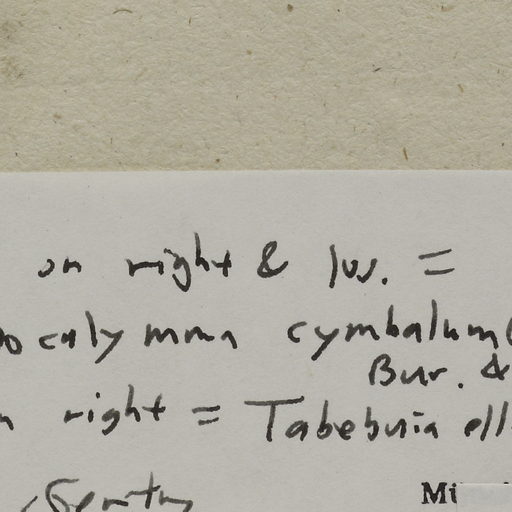 on right & lvs. =
ocalymma cymbalum
Bur. &
right = Tabebuia ell
Gentry